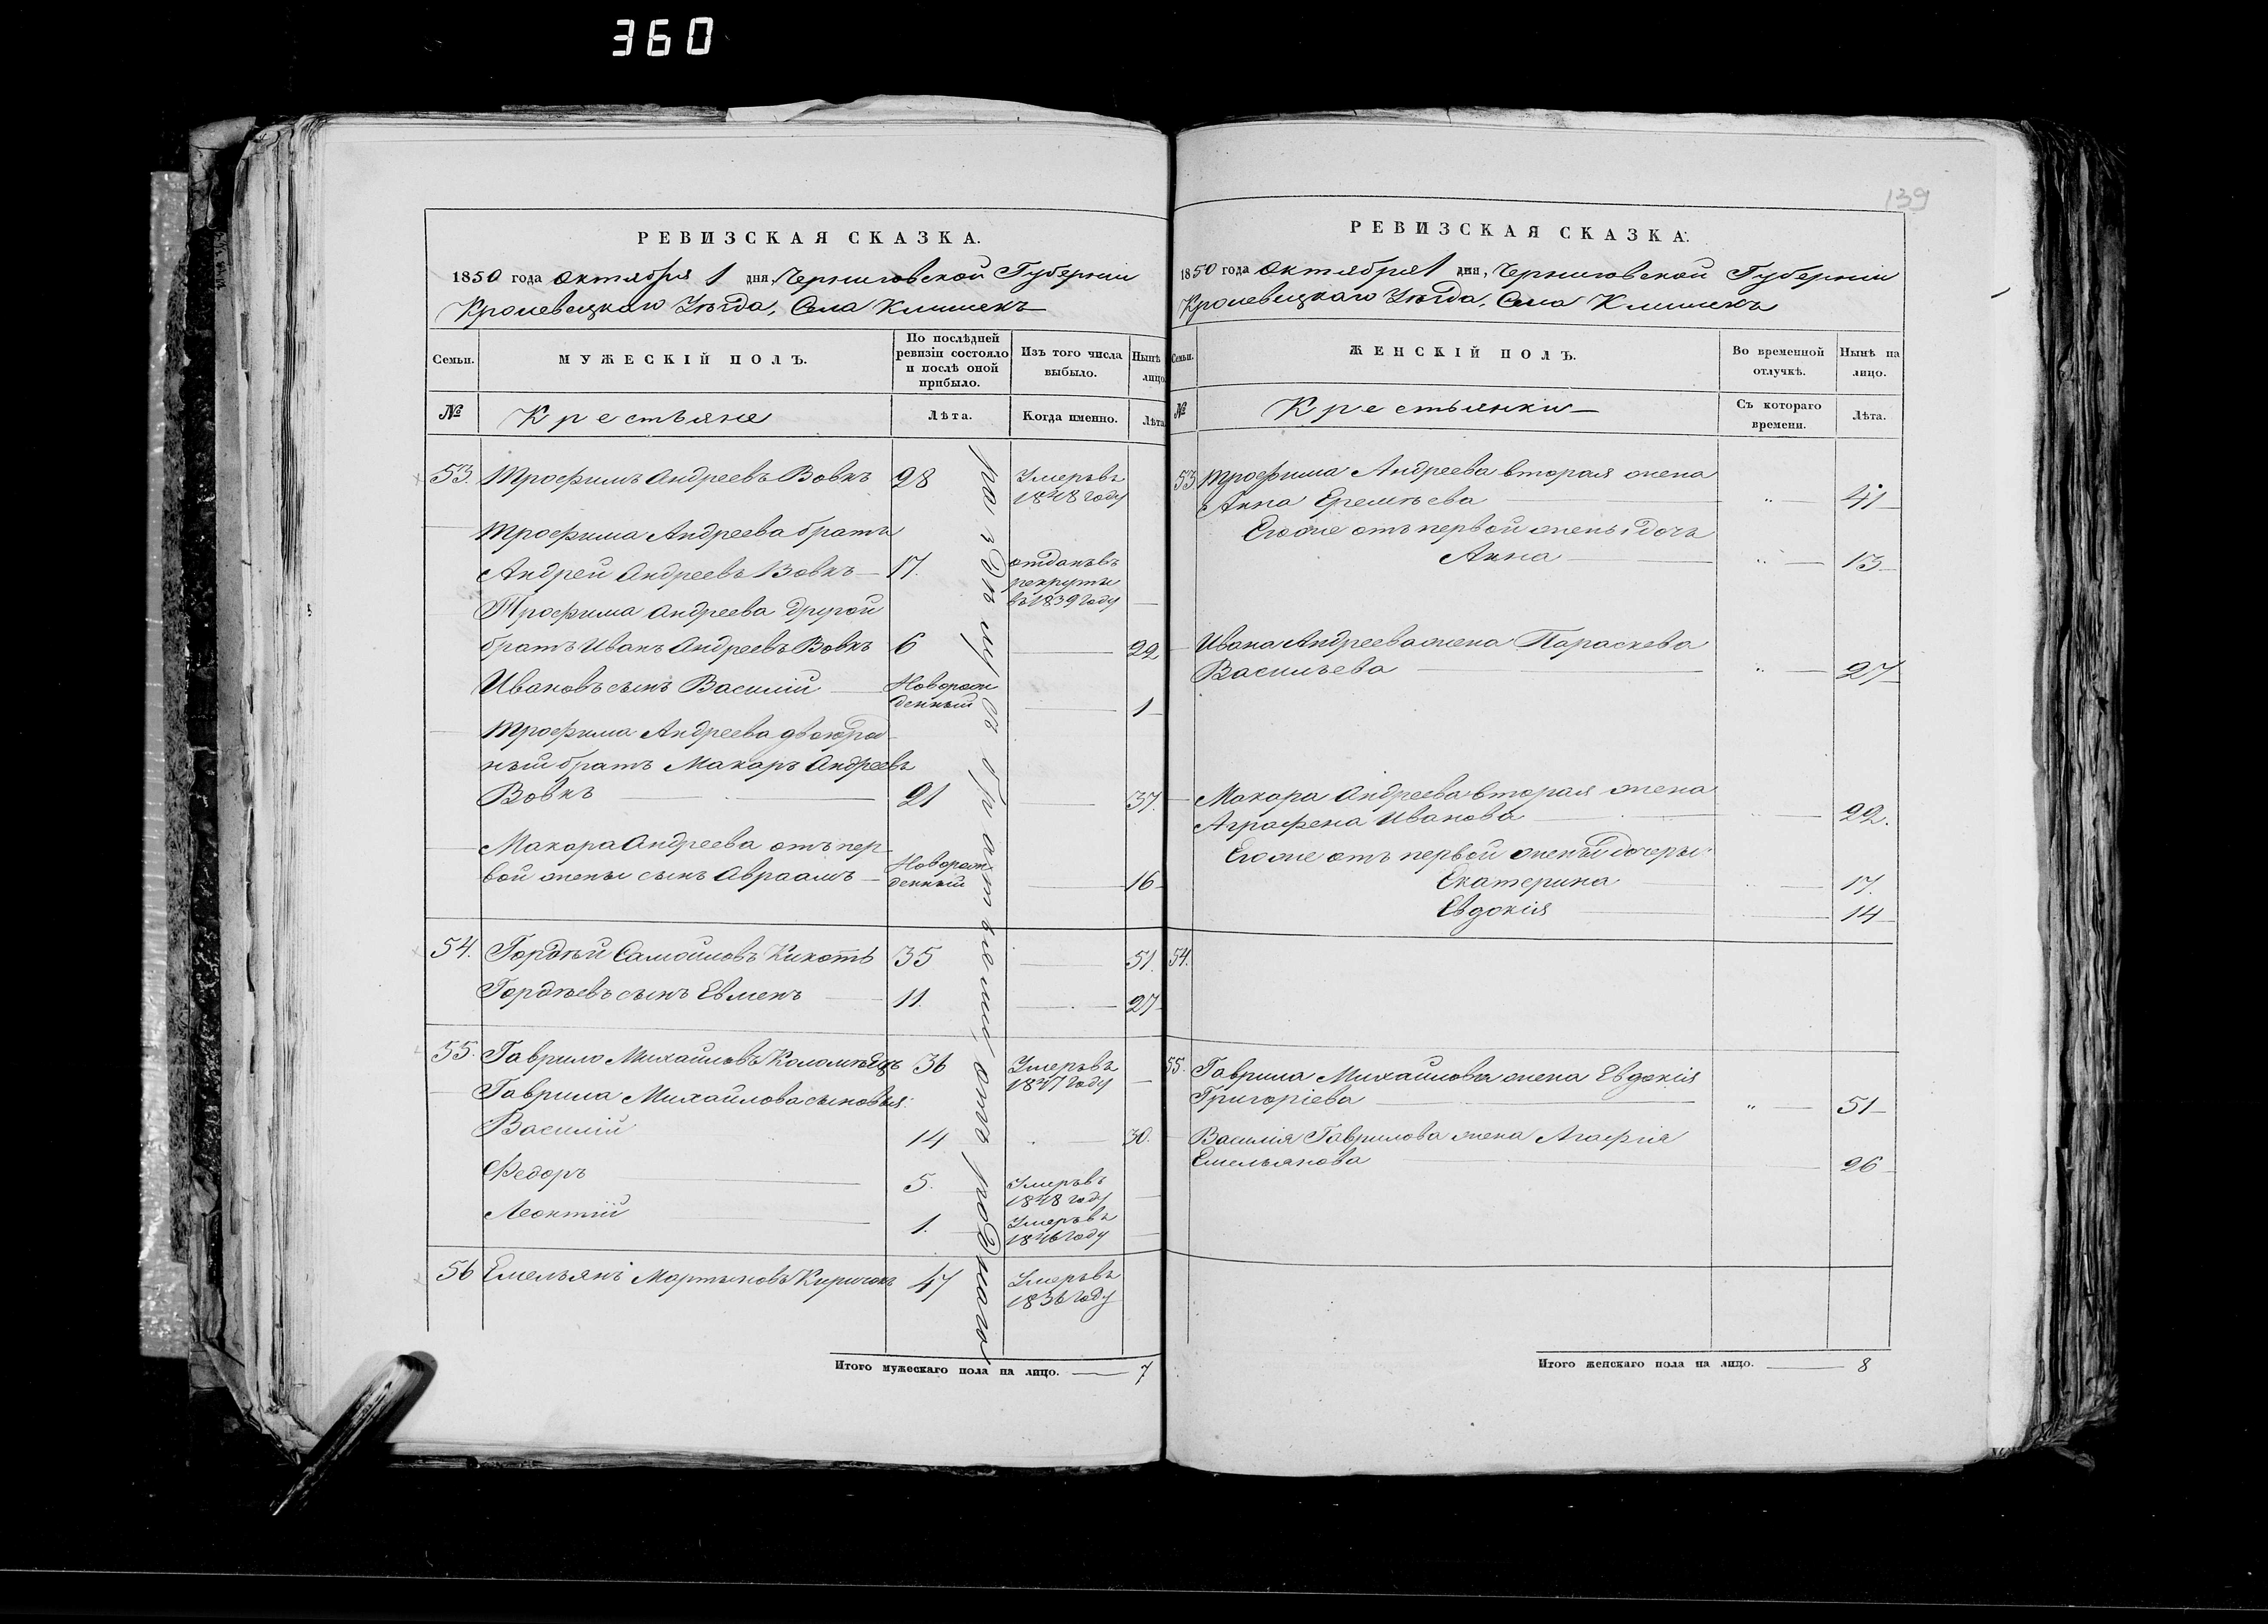 360
РЕВИЗСКАЯ СКАЗКА.
1850 года Октября 1 дня, Черниговской Губерніи
Кролевецкаго Уѣзда, Села Клишекъ
Семьи.
МУЖЕСКІЙ ПОЛЪ.
По послѣдней ревизіи состояло и послѣ оной прибыло.
Изъ того числа выбыло.
Нынѣ на лицо
№
Крестьяне
Лѣта.
Когда именно.
Лѣта
53. Трофимъ Андреевъ Вовкъ 28 Умеръ въ
1848 году
Трофима Андреева братъ
Андрей Андреевъ Вовкъ 17. отданъ въ
рекруты
въ 1839 году
Трофима Андреева другой
братъ Иванъ Андреевъ Вовкъ 6 22
Ивановъ сынъ Василій Новорож
денный 1
Трофима Андреева двоюрод
ный братъ Макаръ Андреевъ
Вовкъ 21 37.
Макара Андреева отъ пер
вой жены сынъ Авраамъ Новорож
денный 16
54. Гордѣй Самойловъ Кикоть 35 51.
Гордѣевъ сынъ Евменъ 11. 27
55. Гаврило Михайловъ Коломѣецъ 36 Умеръ въ
1847 году
Гаврила Михайлова сыновья:
Василій 14 30.
Федоръ 5. Умеръ въ
1848 году
Леонтій 1. Умеръ въ
1846 году
56 Емельянъ Мартыновъ Киричокъ 47 Умеръ въ
1836 году
раздѣлу съ братьями отъ роднаго
Итого мужескаго пола на лицо. 7
139
РЕВИЗСКАЯ СКАЗКА.
1850 года Октября 1 дня, Черниговской Губерніи
Кролевецкаго Уѣзда, Села Клишекъ
Семьи.
ЖЕНСКІЙ ПОЛЪ.
Во временной отлучкѣ.
Нынѣ на лицо.
№
Крестьянки
Съ котораго времени.
Лѣта.
53 Трофима Андреева вторая жена
Анна Еремѣева 41
Его же отъ первой жены дочь
Анна 13
Ивана Андреева жена Параскева
Васильева 27
Макара Андреева вторая жена
Аграфена Иванова 22.
Его же отъ первой жены дочеры:
Екатерина 17.
Евдокія 14
54.
55. Гаврила Михайлова жена Евдокія
Григоріева 51
Василія Гаврилова жена Агафія
Емельянова 26
Итого женскаго пола на лицо. 8